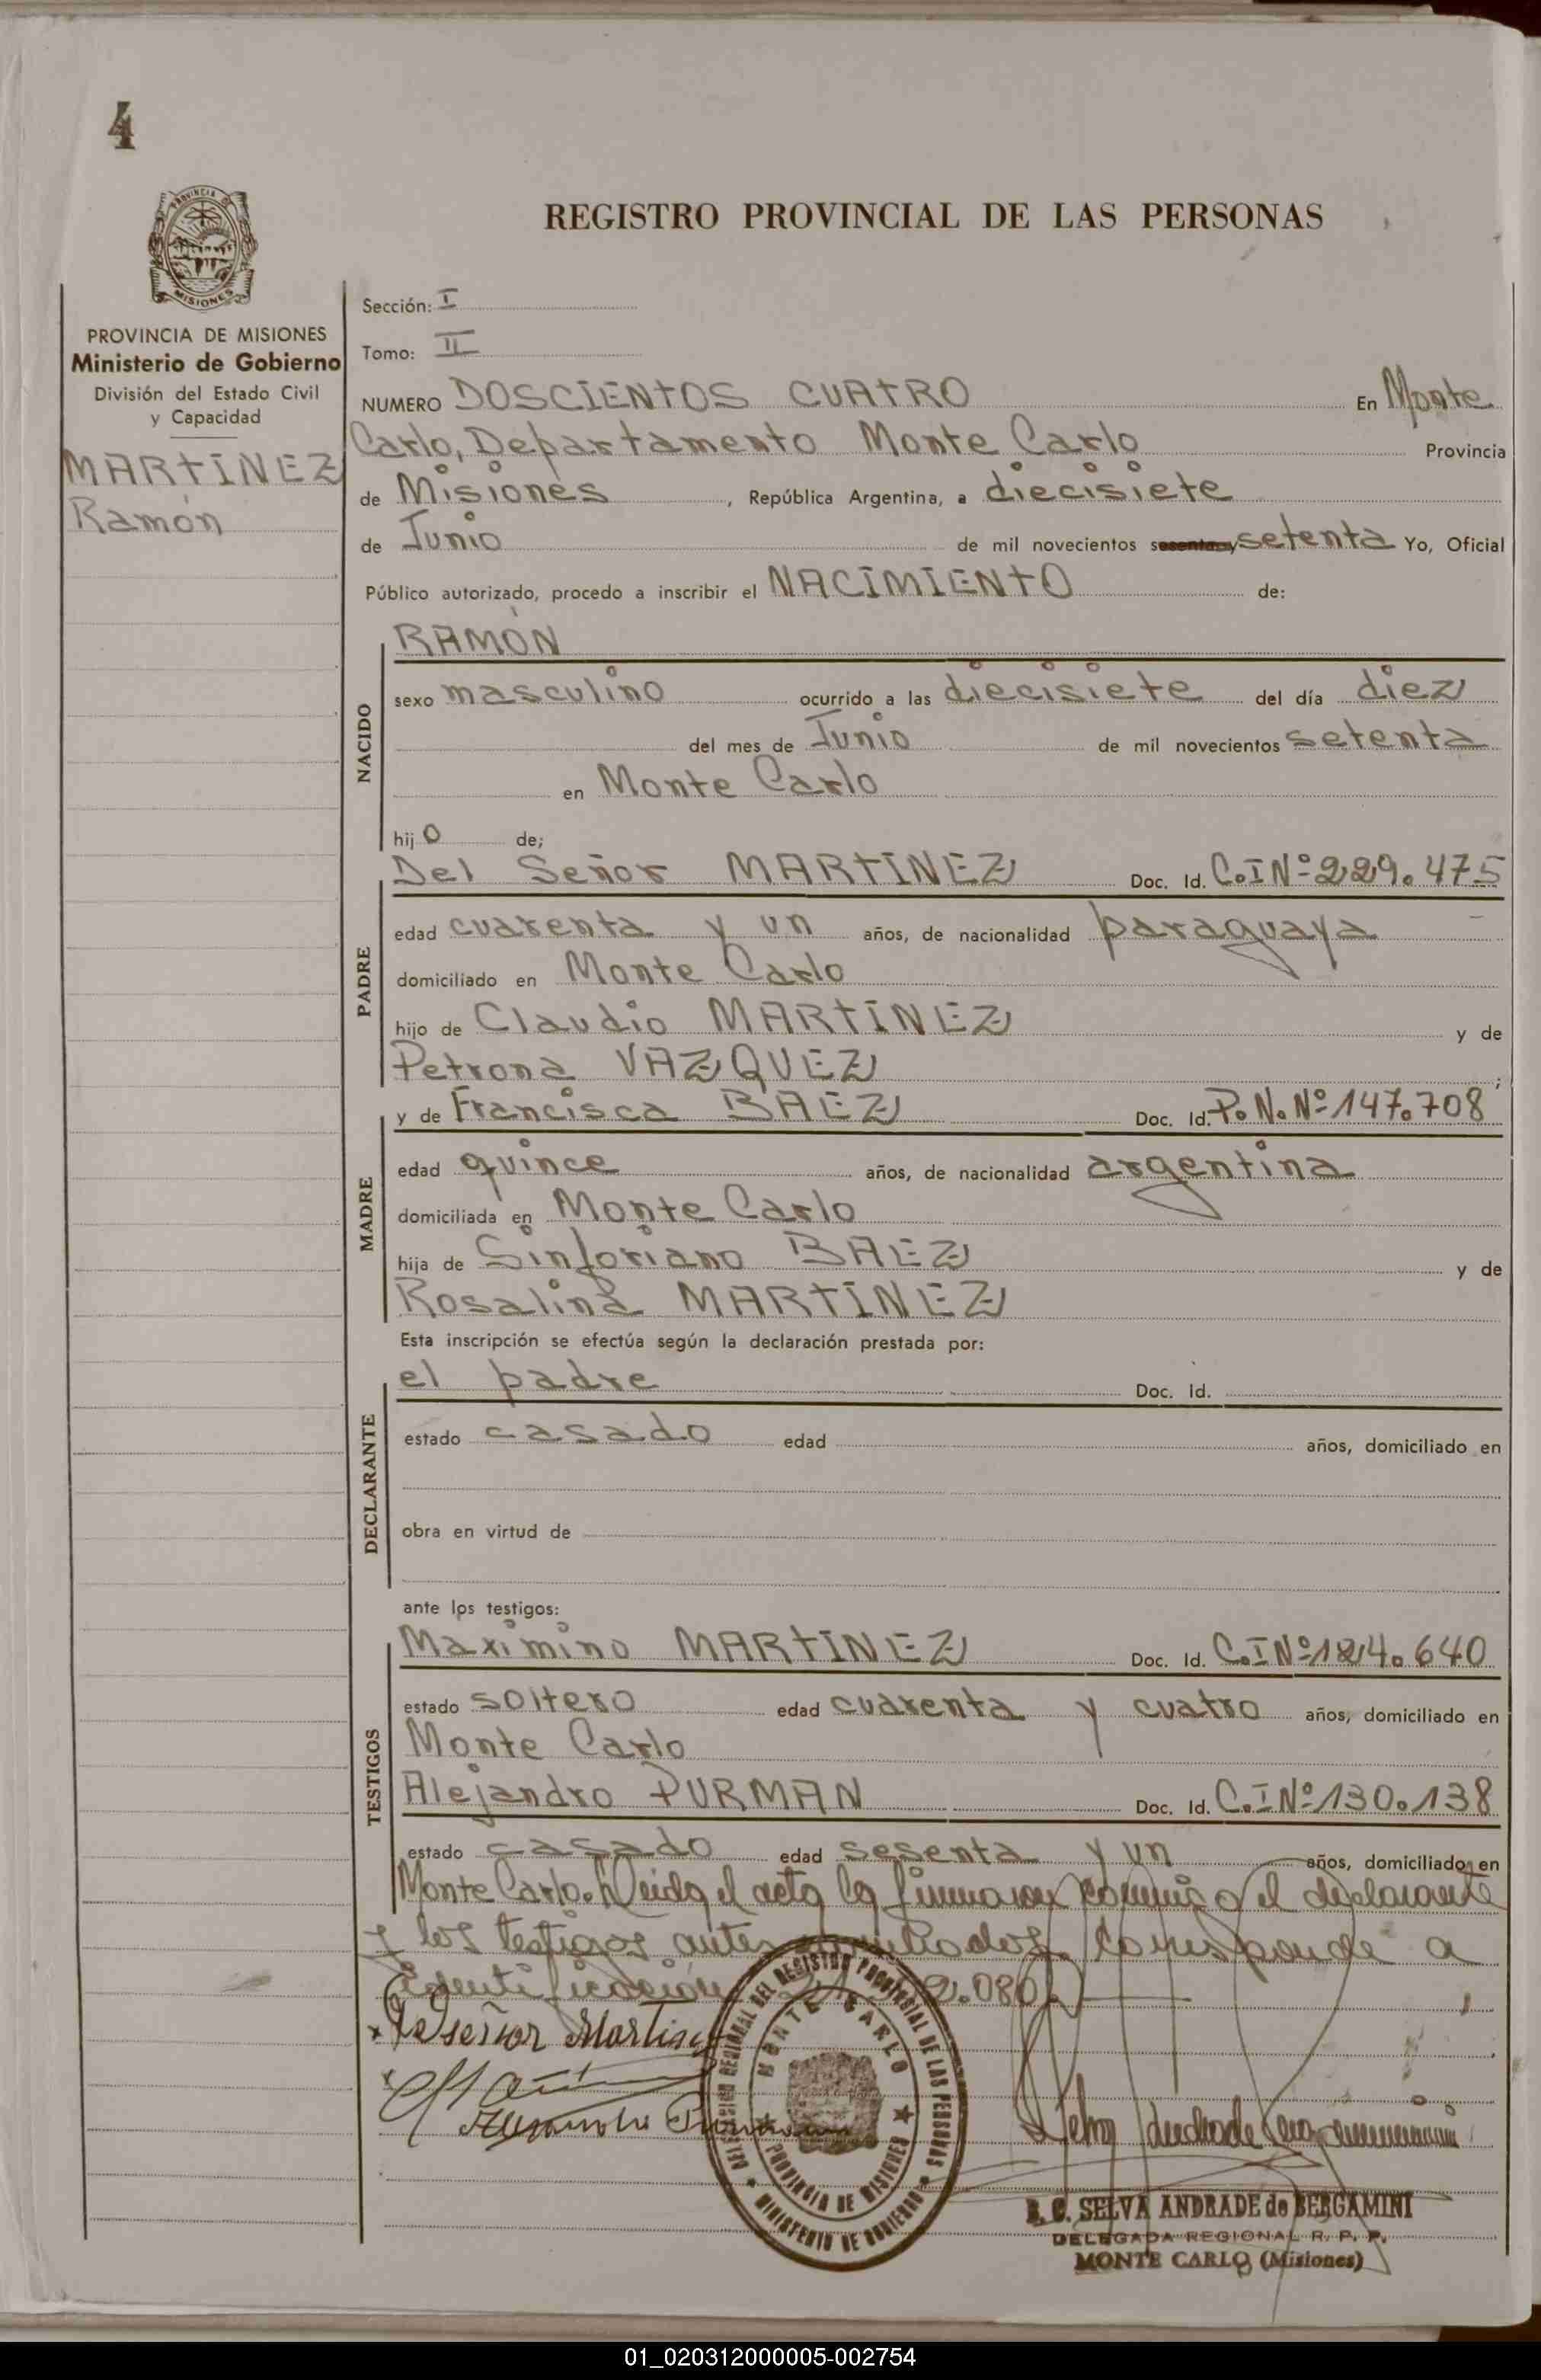 4
PROVINCIA
MISIONES
REGISTRO PROVINCIAL DE LAS PERSONAS
PROVINCIA DE MISIONES
Ministerio de Gobierno
División del Estado Civil
y Capacidad
MARTINEZ
Ramón
Sección: I
Tomo: II
NUMERO DOSCIENTOS CUATRO En Monte
Carlo, Departamento Monte Carlo Provincia
de Misiones, República Argentina, a diecisiete
de Junio de mil novecientos setenta Yo, Oficial
Público autorizado, procedo a inscribir el NACIMIENTO de:
NACIDO
RAMÓN
sexo masculino ocurrido a las diecisiete del día diez
del mes de Junio de mil novecientos setenta
en Monte Carlo
hijo de;
PADRE
Del Señor MARTINEZ Doc. Id. C.I Nº 229.475
edad cuarenta y un años, de nacionalidad paraguaya
domiciliado en Monte Carlo
hijo de Claudio MARTINEZ y de
Petrona VAZQUEZ;
MADRE
y de Francisca BAEZ Doc. Id. P.N.Nº 147.708
edad quince años, de nacionalidad argentina
domiciliada en Monte Carlo
hija de Sinforiano BAEZ y de
Rosalina MARTINEZ
Esta inscripción se efectúa según la declaración prestada por:
DECLARANTE
el padre Doc. Id.
estado casado edad años, domiciliado en
obra en virtud de
ante los testigos:
TESTIGOS
Maximino MARTINEZ Doc. Id. C.I Nº 124.640
estado soltero edad cuarenta y cuatro años, domiciliado en
Monte Carlo
Alejandro PURMAN Doc. Id. C.I Nº 130.138
estado casado edad sesenta y un años, domiciliado en
Monte Carlo. Leida el acta la firmaron conmigo el declarante
y los testigos antes nombrados. Corresponde a
Identificación 2.080
Del señor Martinez
DELEGACION REGIONAL DEL REGISTRO PROVINCIAL DE LAS PERSONAS
MONTE CARLO
PROVINCIA DE MISIONES
MINISTERIO DE GOBIERNO
SELVA ANDRADE de BERGAMINI
DELEGADA REGIONAL R. P. P.
MONTE CARLO (Misiones)
01_020312000005-002754